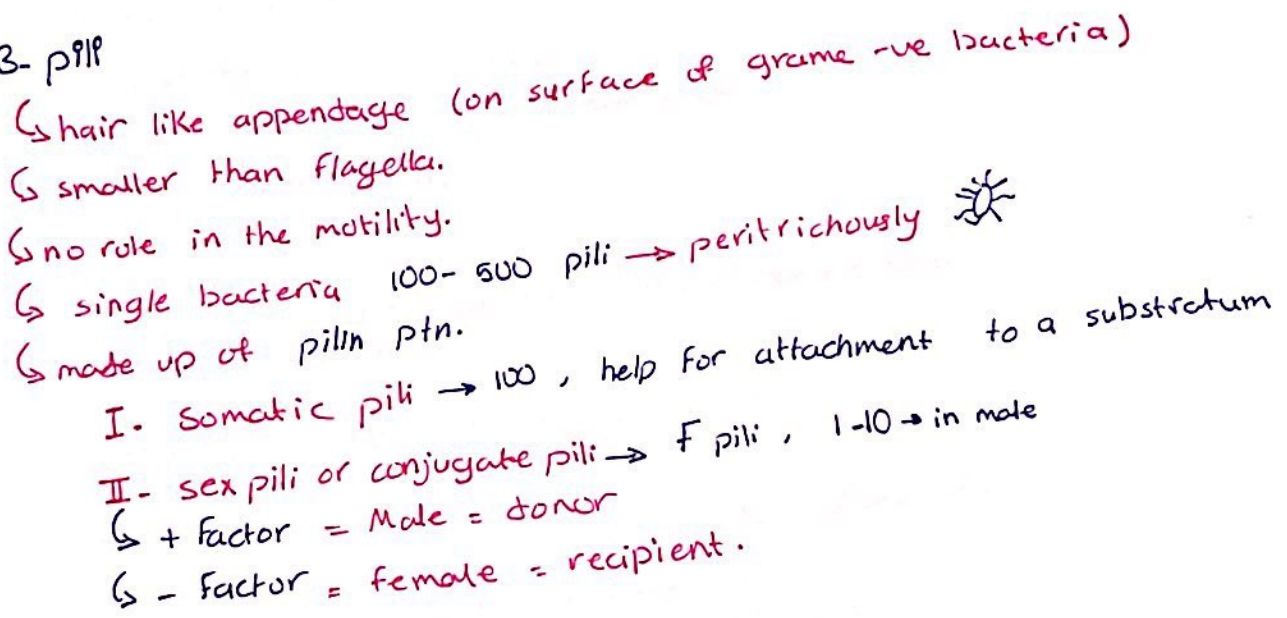 3- pili
↳ hair like appendage (on surface of grame -ve bacteria)
↳ smaller than flagella.
↳ no role in the motility.
↳ single bacteria 100- 500 pili → peritrichously
↳ made up of pilin ptn.
I. Somatic pili → 100 , help for attachment to a substratum
II- sex pili or conjugate pili → F pili , 1-10 → in male
↳ + factor = Male = donor
↳ - factor = female = recipient.